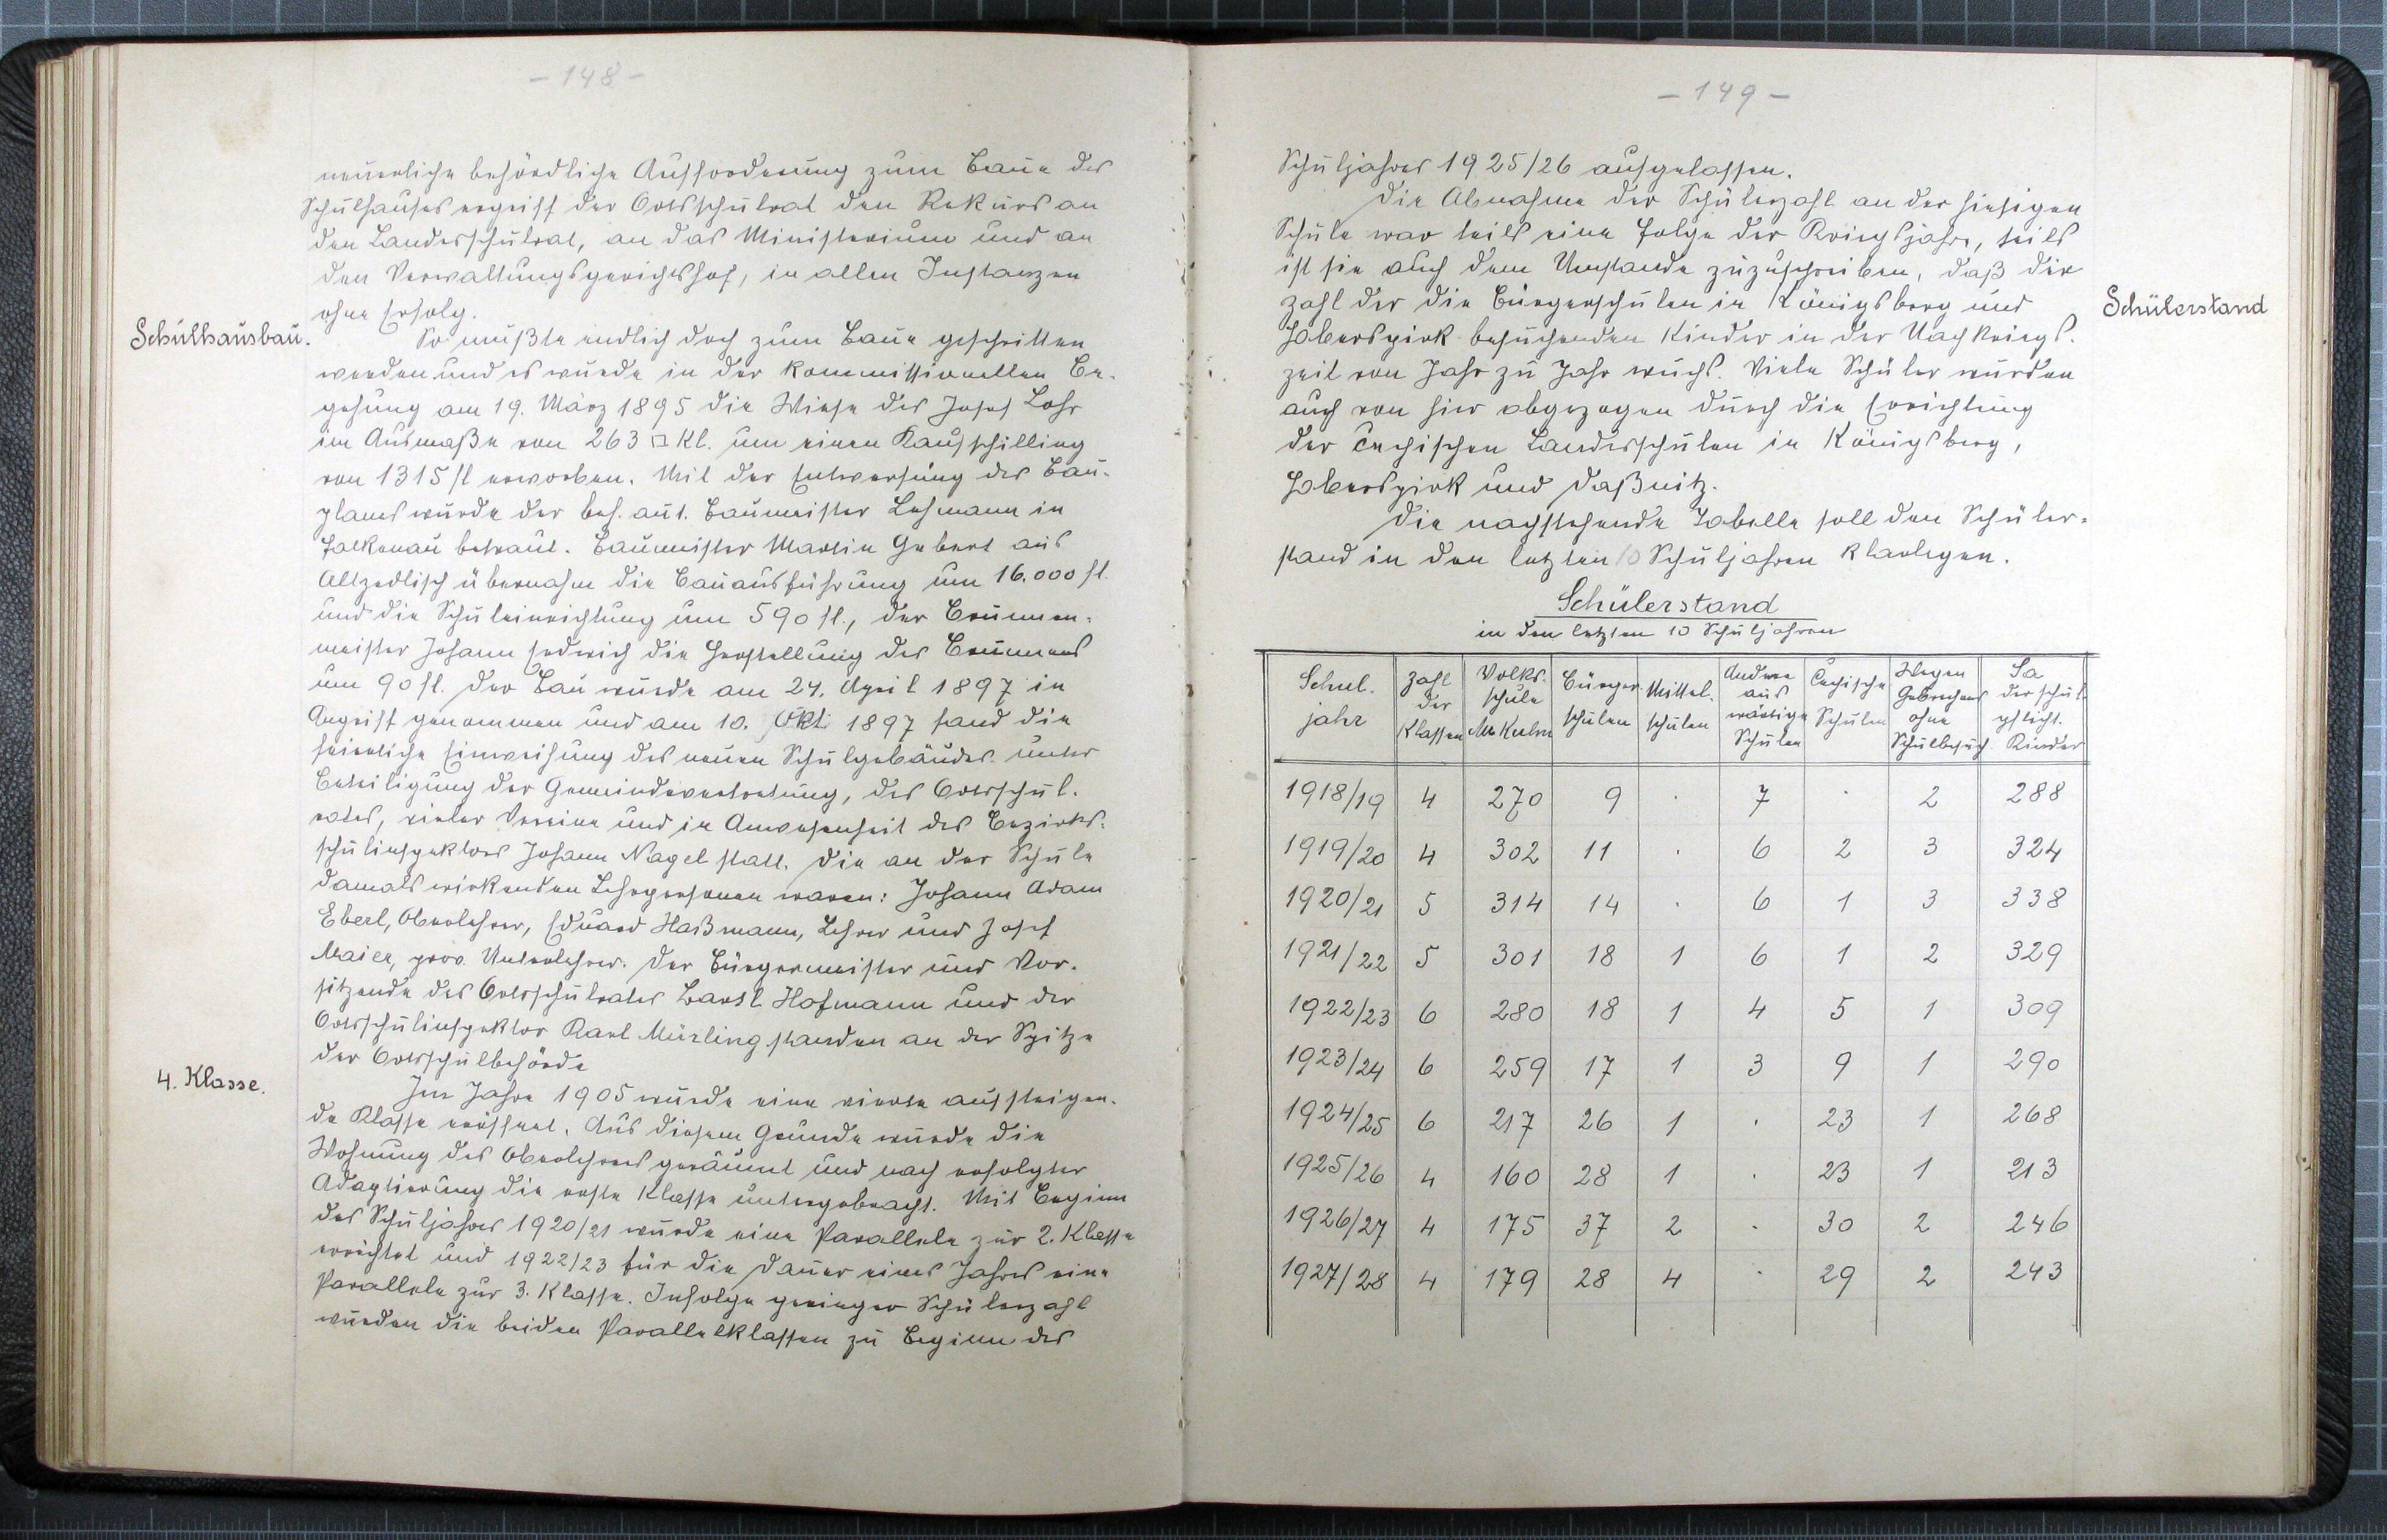 - 148 -
neuerliche behördliche Aufforderung zum Baue des
Schulhauses ergriff der Ortsschulrat den Rekurs an
den Landesschulrat, an das Ministerium und an
den Verwaltungsgerichtshof, in allen Instanzen
ohne Erfolg.
Schulhausbau.
So mußte endlich doch zum Baue geschritten
werden und es wurde in der kommissionellen Be-
gehung am 19. März 1895 die Wiese des Josef Lohr
im Ausmaße von 263 □ Kl. um einen Kaufschilling
von 1315 fl erworben. Mit der Entwerfung des Bau-
planes wurde der beh. aut. Baumeister Lehmann in
Falkenau betraut. Baumeister Martin Gebert aus
Altzedlisch übernahm die Bauausführung um 16.000 fl.
und die Schuleinrichtung um 590 fl., der Brunnen-
meister Johann die Herstellung des Brunnens
um 90 fl. Der Bau wurde am 24. April 1897 in
Angriff genommen und am 10. Okt. 1897 fand die
feierliche Einweihung des neuen Schulgebäudes unter
Beteiligung der Gemeindevertretung, des Ortsschul-
rates, vieler Vereine und in Anwesenheit des Bezirks-
schulinspektors Johann Nagel statt. Die an der Schule
damals wirkenden Lehrpersonen waren: Johann Adam
Eberl, Oberlehrer, Eduard Haßmann, Lehrer und Josef
Maier, prov. Unterlehrer. Der Bürgermeister und Vor-
sitzende des Ortsschulrates Hofmann und der
Ortsschulinspektor Karl Mürling standen an der Spitze
der Ortsschulbehörde
4. Klasse.
Im Jahre 1905 wurde eine vierte aufsteigen-
de Klasse eröffnet. Aus diesem Grunde wurde die
Wohnung des Oberlehrers geräumt und nach erfolgter
Adaptierung die erste Klasse untergebracht. Mit Beginn
des Schuljahres 1920/21 wurde eine Parallele zur 2. Klasse
errichtet und 1922/23 für die Dauer eines Jahres eine
Parallele zur 3. Klasse. Infolge geringer Schülerzahl
wurden die beiden Parallelklassen zu Beginn des
- 149 -
Schuljahres 1925/26 aufgelassen.
Die Abnahme der Schülerzahl an der hiesigen
Schule war teils eine Folge der Kriegsjahre, teils
ist sie auch dem Umstande zuzuschreiben, daß die
Zahl der die Bürgerschulen in Königsberg und
Schülerstand
Haberspirk besuchenden Kinder in der Nachkriegs-
zeit von Jahr zu Jahr wuchs. Viele Schüler wurden
auch von hier abgezogen durch die Errichtung
der čechischen Landesschulen in Königsberg,
Haberspirk und Daßnitz.
Die nachstehende Tabelle soll den Schüler-
stand in den letzten 10 Schuljahren klarlegen.
Schülerstand
in den letzten 10 Schuljahren
Schul- jahr | Zahl der Klassen | Volks- schule M. Kulm | Bürger- schulen | Mittel- schulen | Andere auswärtige Schulen | Čechische Schulen | Wegen Gebrechens ohne Schulbesuch | Sa der schul- pflicht. Kinder
1918/19 4 270 9 . 7 . 2 288
1919/20 4 302 11 . 6 2 3 324
1920/21 5 314 14 . 6 1 3 338
1921/22 5 301 18 1 6 1 2 329
1922/23 6 280 18 1 4 5 1 309
1923/24 6 259 17 1 3 9 1 290
1924/25 6 217 26 1 . 23 1 268
1925/26 4 160 28 1 . 23 1 213
1926/27 4 175 37 2 . 30 2 246
1927/28 4 179 28 4 . 29 2 243